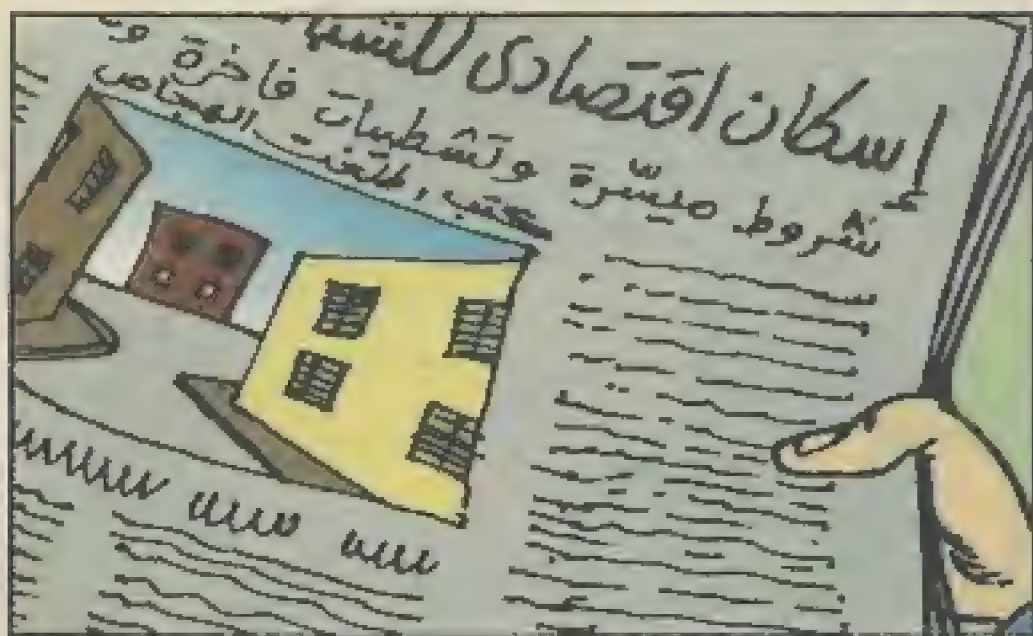 إسكان اقتصادى للشبا
شروط ميسّرة وتشطيبات فاخرة و
كتب